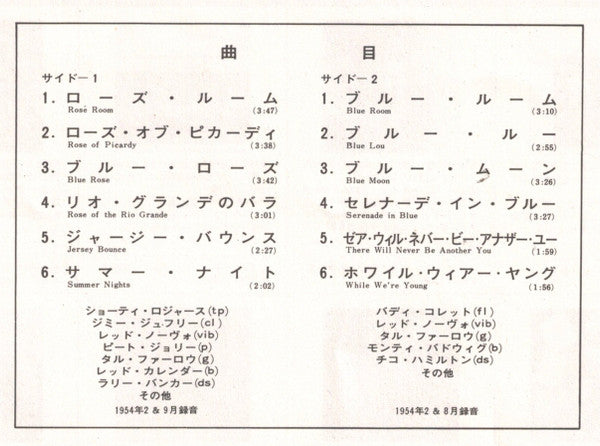 曲 目
サイド－1
1. ローズ・ルーム
Rosé Room (3:47)
2. ローズ・オブ・ピカーディ
Rose of Picardy (3:38)
3. ブルー・ローズ
Blue Rose (3:42)
4. リオ・グランデのバラ
Rose of the Rio Grande (3:01)
5. ジャージー・バウンス
Jersey Bounce (2:27)
6. サマー・ナイト
Summer Nights (2:02)
ショーティ・ロジャース(tp)
ジミー・ジュフリー(cl)
レッド・ノーヴォ(vib)
ピート・ジョリー(p)
タル・ファーロウ(g)
レッド・カレンダー(b)
ラリー・バンカー(ds)
その他
1954年2 & 9月録音
サイド－2
1. ブルー・ルーム
Blue Room (3:10)
2. ブルー・ルー
Blue Lou (2:55)
3. ブルー・ムーン
Blue Moon (3:26)
4. セレナーデ・イン・ブルー
Serenade in Blue (3:27)
5. ゼア・ウィル・ネバー・ビー・アナザー・ユー
There Will Never Be Another You (1:59)
6. ホワイル・ウィアー・ヤング
While We're Young (1:56)
バディ・コレット(fl)
レッド・ノーヴォ(vib)
タル・ファーロウ(g)
モンティ・バドウィグ(b)
チコ・ハミルトン(ds)
その他
1954年2 & 8月録音